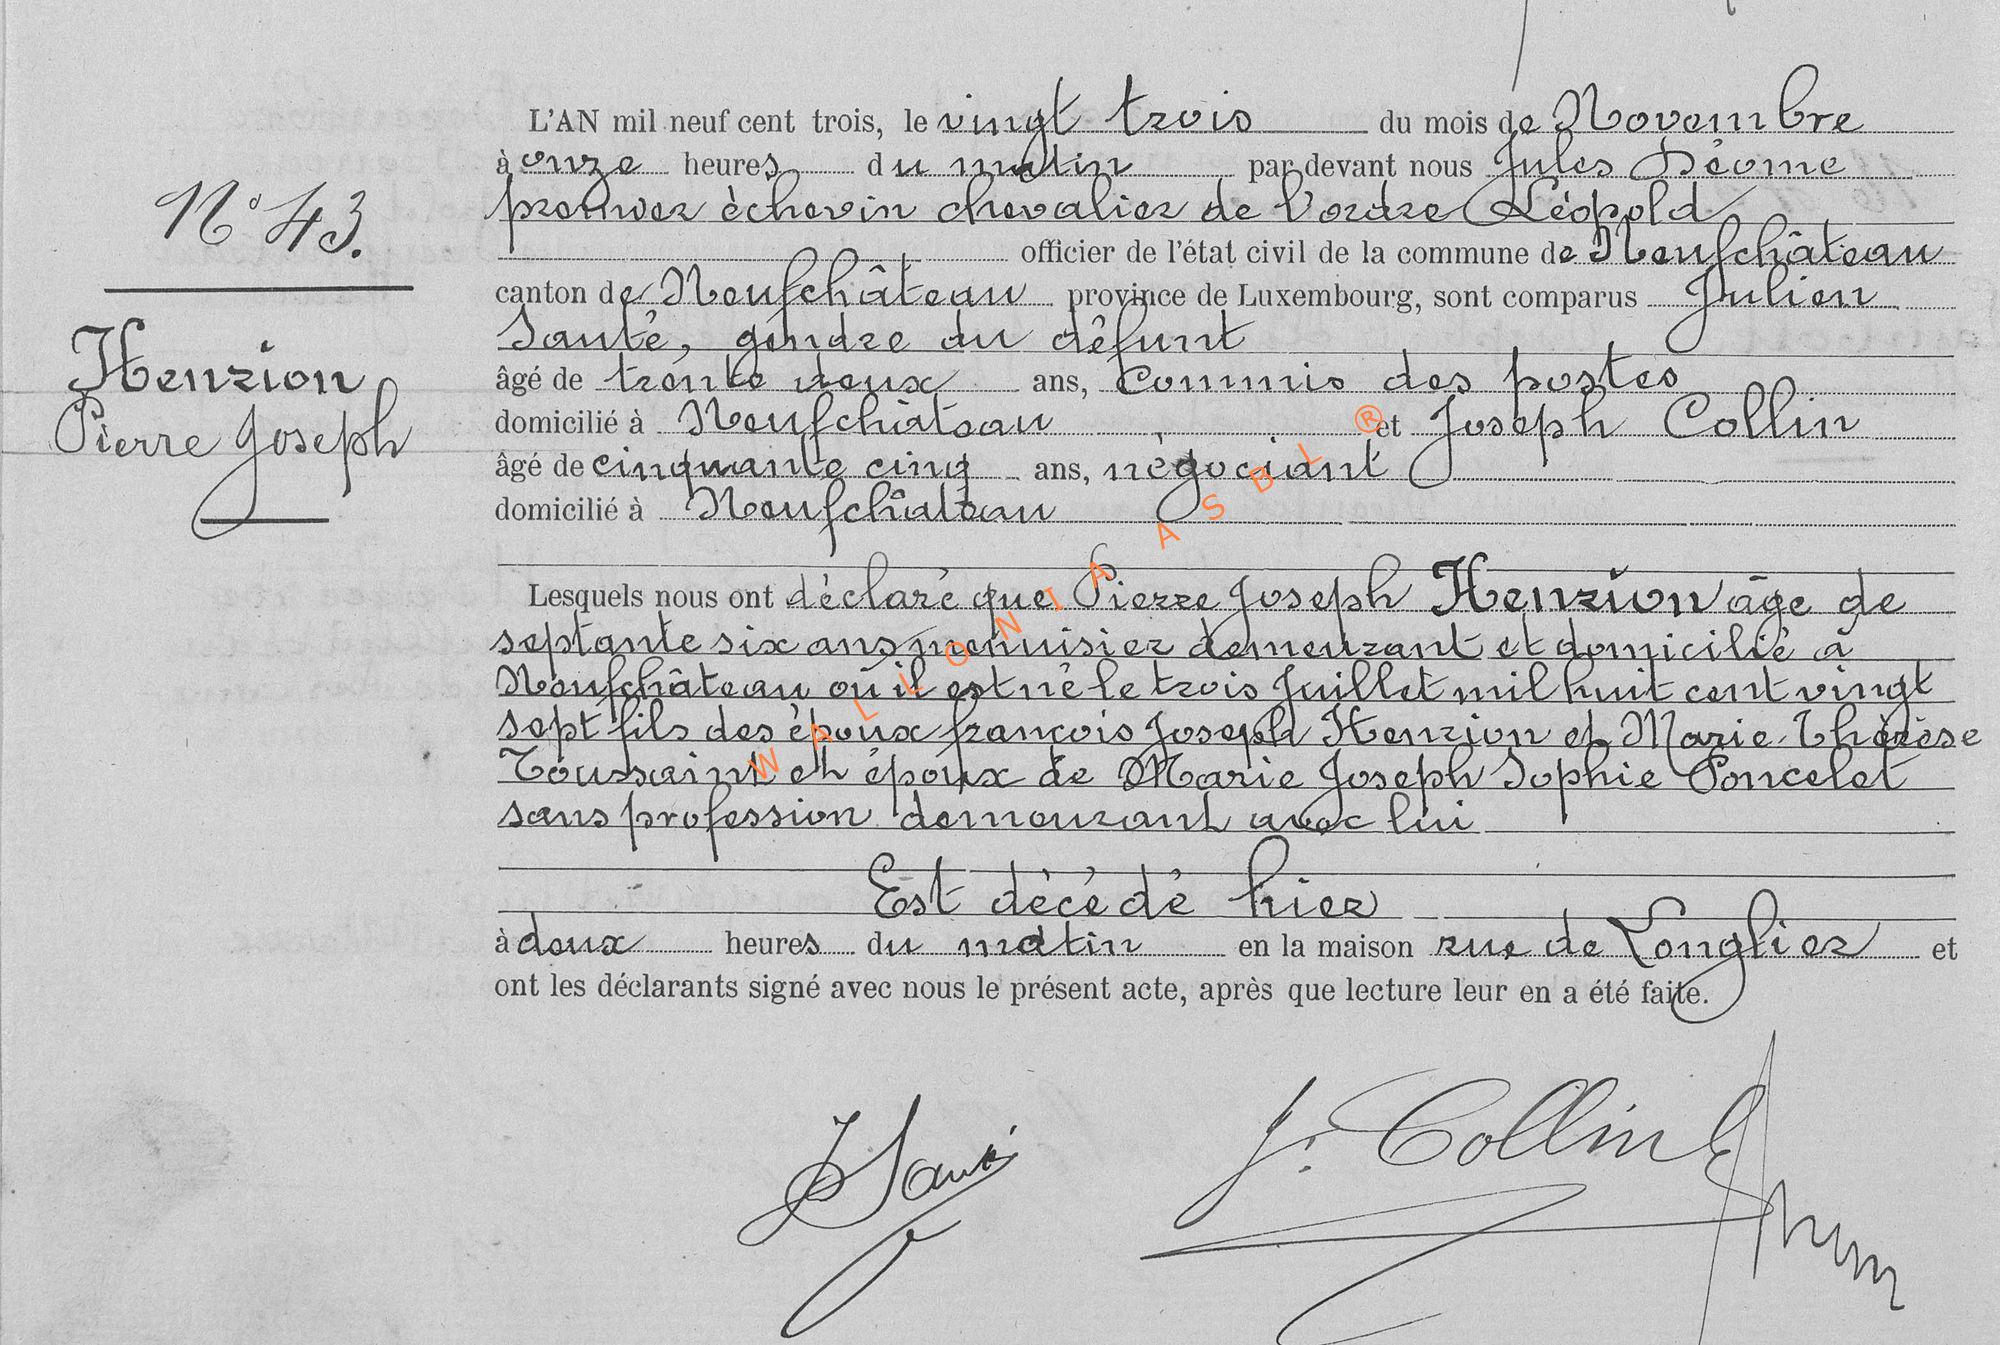 L'AN mil neuf cent trois, le vingt trois du mois de Novembre
à onze heures du matin par devant nous Jules Déome
premier échevin chevalier de l'ordre Léopold
officier de l'état civil de la commune de Neufchâteau
canton de Neufchâteau province de Luxembourg, sont comparus Julien
Santé, gendre du défunt
âgé de trente deux ans, Commis des postes
domicilié à Neufchâteau et Joseph Collin
âgé de cinquante cinq ans, négociant
domicilié à Neufchâteau
N° 43.
Henrion
Pierre Joseph
Lesquels nous ont déclaré que Pierre Joseph Henrion âgé de
septante six ans menuisier demeurant et domicilié à
Neufchâteau où il est né le trois Juillet mil huit cent vingt
sept fils des époux françois Joseph Henrion et Marie Thérèse
Toussaint et époux de Marie Joseph Sophie Poncelet
sans profession demeurant avec lui
Est décédé hier
à deux heures du matin en la maison rue de Longlier et
ont les déclarants signé avec nous le présent acte, après que lecture leur en a été faite.
J Santé
J. Collin
WALLONIA ASBL ®